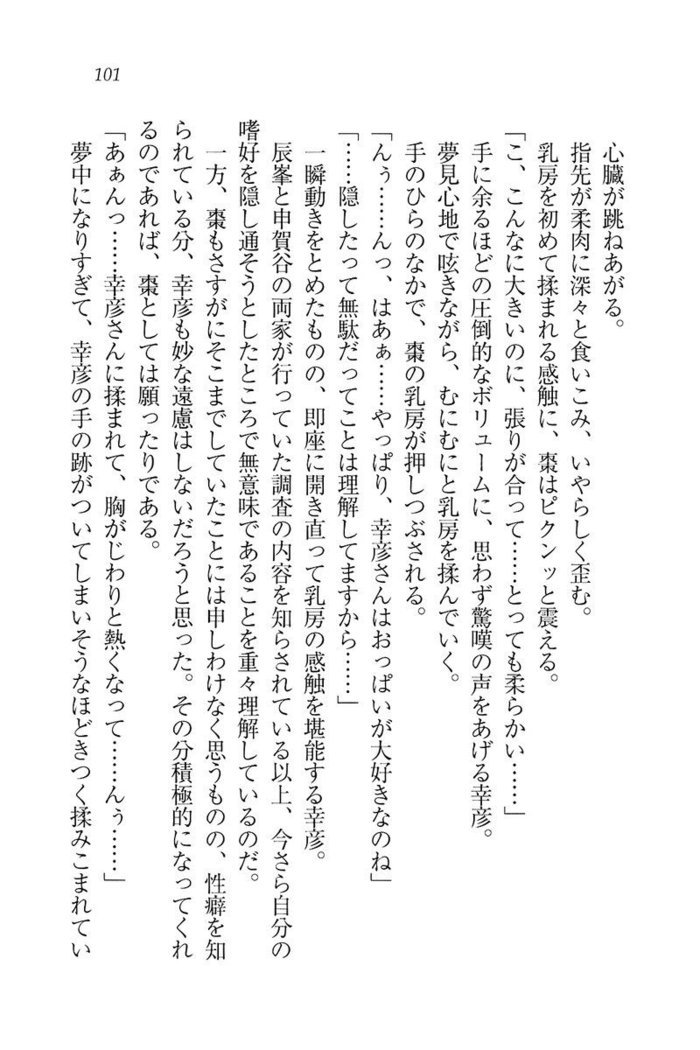 101
心臓が跳ねあがる。
指先が柔肉に深々と食いこみ、いやらしく歪む。
乳房を初めて揉まれる感触に、棗はピクンッと震える。
「こ、こんなに大きいのに、張りが合って……とっても柔らかい……」
手に余るほどの圧倒的なボリュームに、思わず驚嘆の声をあげる幸彦。
夢見心地で呟きながら、むにむにと乳房を揉んでいく。
手のひらのなかで、棗の乳房が押しつぶされる。
「んぅ……んっ、はあぁ……やっぱり、幸彦さんはおっぱいが大好きなのね」
「……隠したって無駄だってことは理解してますから……」
一瞬動きをとめたものの、即座に開き直って乳房の感触を堪能する幸彦。
辰峯と申賀谷の両家が行っていた調査の内容を知らされている以上、今さら自分の
嗜好を隠し通そうとしたところで無意味であることを重々理解しているのだ。
一方、棗もさすがにそこまでしていたことには申しわけなく思うものの、性癖を知
られている分、幸彦も妙な遠慮はしないだろうと思った。その分積極的になってくれ
るのであれば、棗としては願ったりである。
「あぁんっ……幸彦さんに揉まれて、胸がじわりと熱くなって……んぅ……」
夢中になりすぎて、幸彦の手の跡がついてしまいそうなほどきつく揉みこまれてい